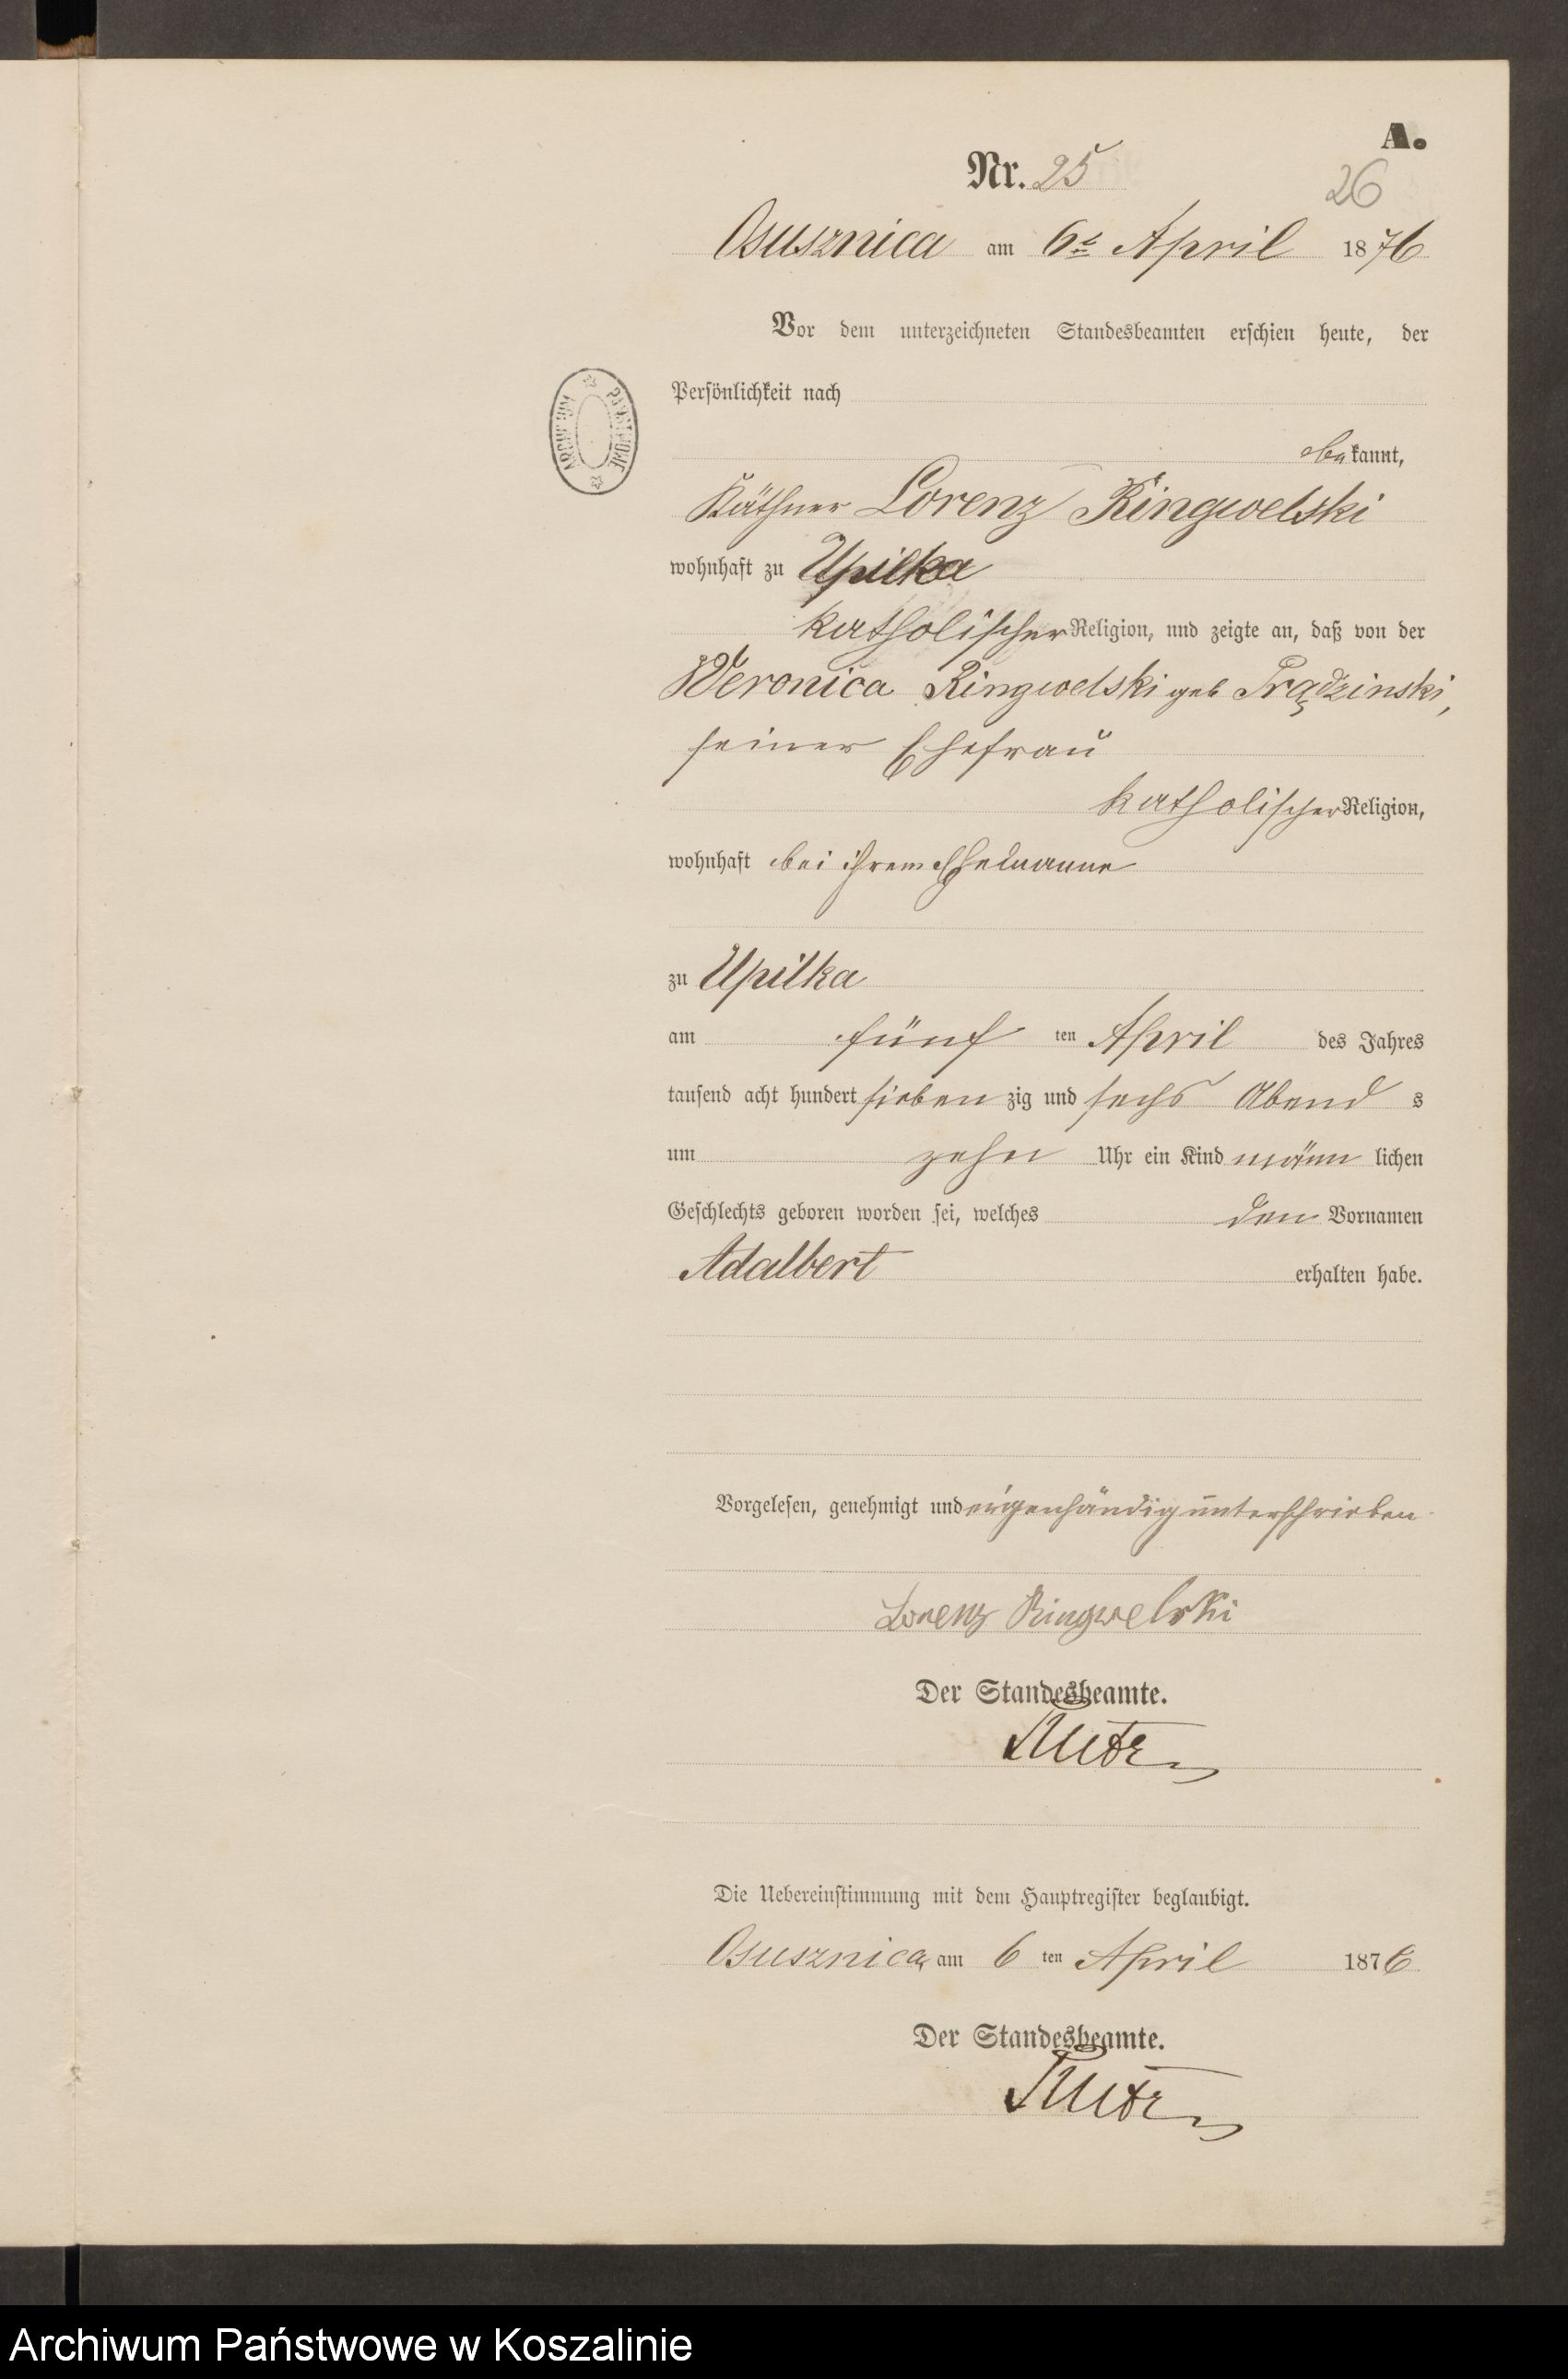 A.
Nr. 25
26
Osusznica am 6t April 1876
Vor dem unterzeichneten Standesbeamten erschien heute, der
Persönlichkeit nach
bekannt,
Käthner Lorenz Ringwelski
wohnhaft zu Upilka
katholischer Religion, und zeigte an, daß von der
Weronica Ringwelski geb Prądzinski,
seiner Ehefrau
katholischer Religion,
wohnhaft bei ihrem Ehemanne
zu Upilka
am fünf ten April des Jahres
tausend acht hundert sieben zig und sechs Abend s
um zehn Uhr ein Kind männ lichen
Geschlechts geboren worden sei, welches den Vornamen
Adalbert erhalten habe.
Vorgelesen, genehmigt und eigenhändig unterschrieben
Lorenz Ringwelski
Der Standesbeamte.
Die Uebereinstimmung mit dem Hauptregister beglaubigt.
Osusznica, am 6 ten April 1876
Der Standesbeamte.
ARCHIWUM PAŃSTWOWE
Archiwum Państwowe w Koszalinie